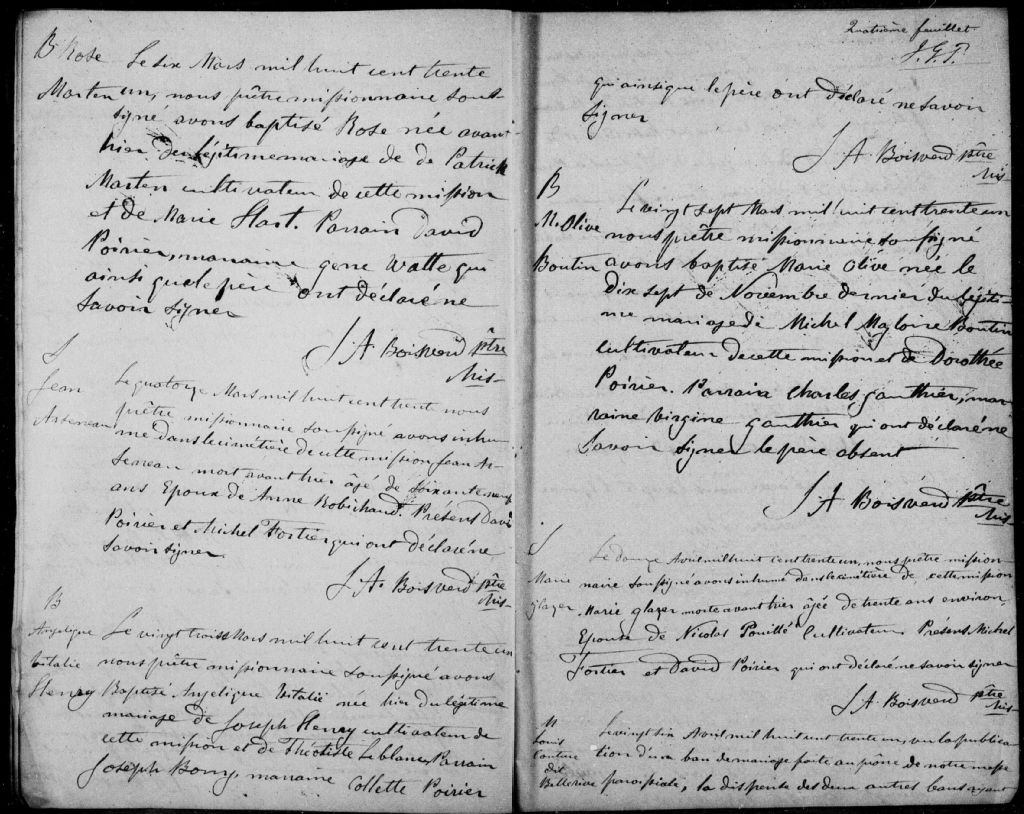 B Rose
Marten
Le six Mars mil huit cent trente
un, nous prêtre missionnaire sous-
signé avons baptisé Rose née avant
hier du légitime mariage de de Patrick
Marten cultivateur de cette mission
et de Marie Hart. Parrain David
Poirier, marraine gene Watte qui
ainsi que le père ont déclaré ne
savoir signer
J A Boisverd ptre
Mis-
S
Jean
Arseneau
Le quatorze Mars mil huit cent trente nous
prêtre missionnaire soussigné avons inhu-
mé dans le cimétière de cette mission Jean Ar-
seneau mort avant hier âjé de soixante neuf
ans Epoux de Anne Robichaud. Présens David
Poirier et Michel Fortier qui ont déclaré ne
savoir signer
J A. Boisverd ptre
Mis-
B
Angelique
Vitalie
Henry
Le vingt trois Mars mil huit cent trente un
nous prêtre missionnaire soussigné avons
Baptisé Angelique Vitalié née hier du légitime
mariage de Joseph Henry cultivateur de
cette mission et de Théotiste Leblanc. Parrain
Joseph Bony, maraine
Collette Poirier
Quatrième feuillet
J. G. T.
qui ainsi que le père ont déclaré ne savoir
signer
J A. Boisverd ptre
Mis-
B
M. Olive
Boutin
Le vingt sept Mars mil huit cent trente un
nous prêtre missionnaire soussigné
avons baptisé Marie Olive née le
dix sept de Novembre dernier du légiti-
me mariage de Michel Magloire Boutin
cultivateur de cette mission et de Dorothée
Poirier. Parrain Charles gauthier, mar-
raine virgine gauthier qui ont déclaré ne
savoir signer le père absent
J A Boisverd ptre
Mis-
S
Marie
glazer
Le douze Avril mil huit cent trente un, nous prêtre mission-
naire soussigné avons inhumé dans le cimétière de cette mission
Marie glazer morte avant hier âjée de trente ans environ,
Epouse de Nicolas Pouillé Cultivateur. Présens Michel
Fortier et David Poirier qui ont déclaré ne savoir signer
J A. Boisverd ptre
Mis-
M
Louis
Couture
dit
Bellerive
Le vingt six Avril mil huit cent trente un, vu la publica-
tion d'un ban de mariage faite au prône de notre messe
paroissiale, la dispense des deux autres bans ayant